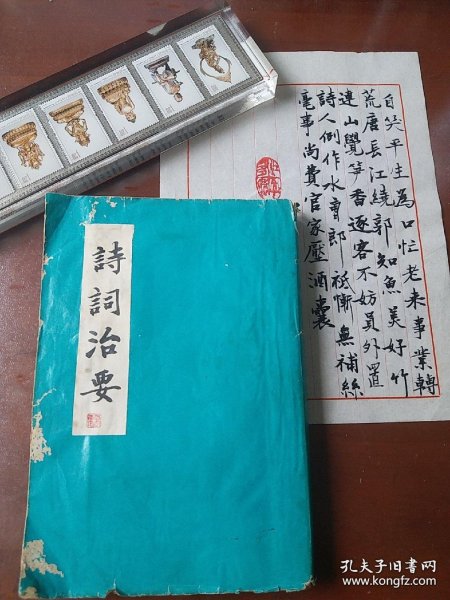 詩詞治要
自笑平生為口忙老来事業轉
荒唐長江繞郭知魚美好竹
連山覺笋香逐客不妨員外置
詩人例作水曹郎祗慚無補絲
毫事尚費官家壓酒囊
孔夫子旧书网
www.kongfz.com